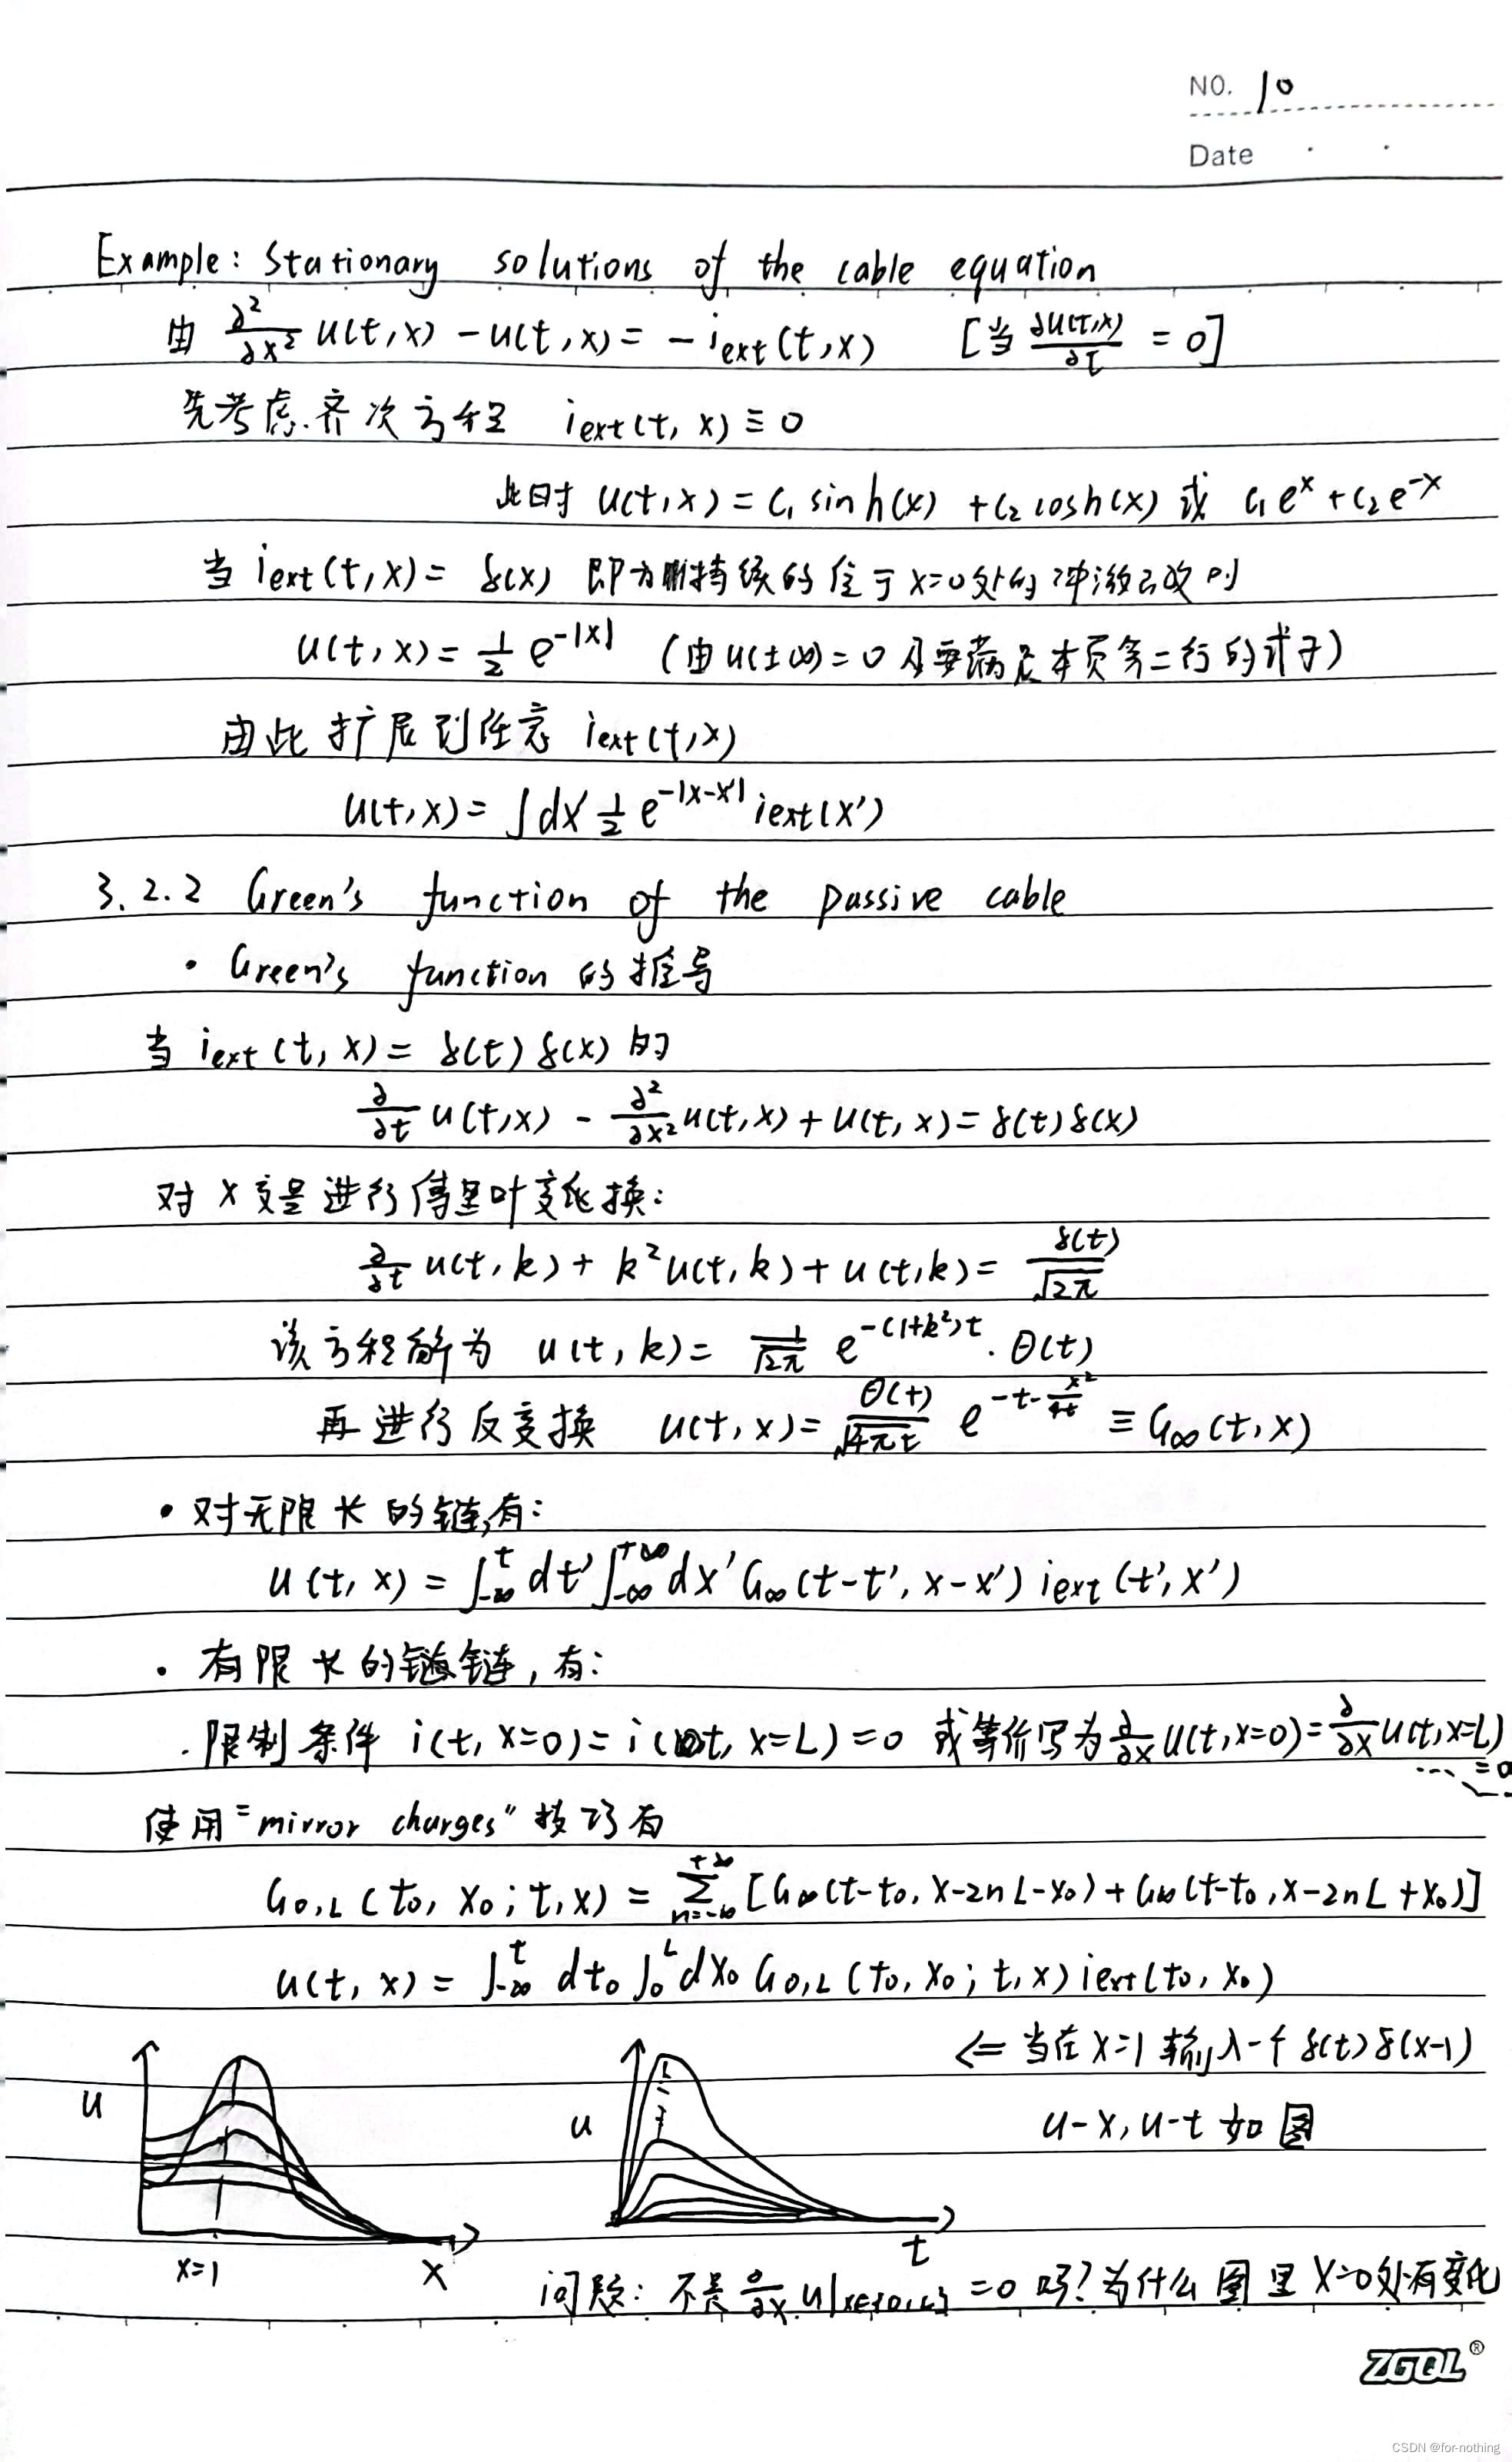 NO. 10
Date
Example: Stationary solutions of the cable equation
由 ∂²/∂x² u(t,x) - u(t,x) = -i_ext(t,x) [当 ∂u(t,x)/∂t = 0]
先考虑齐次方程 i_ext(t, x) ≡ 0
此时 u(t,x) = C₁ sinh(x) + C₂ cosh(x) 或 C₁e^x + C₂e^-x
当 i_ext(t,x) = δ(x) 即为持续的位于 x=0 处的冲激
u(t,x) = 1/2 e^-|x| (由 u(±∞)=0 及要满足本页第二行的式子)
由此扩展到任意 i_ext(t,x)
u(t,x) = ∫dx' 1/2 e^-|x-x'| i_ext(x')
3.2.2 Green's function of the passive cable
· Green's function 的推导
当 i_ext(t, x) = δ(t)δ(x) 时
∂/∂t u(t,x) - ∂²/∂x² u(t,x) + u(t,x) = δ(t)δ(x)
对 x 变量进行傅里叶变换:
∂/∂t u(t,k) + k²u(t,k) + u(t,k) = δ(t)/√2π
该方程解为 u(t,k) = 1/√2π e^-(1+k²)t · Θ(t)
再进行反变换 u(t,x) = Θ(t)/√4πt e^-t-x²/4t ≡ G∞(t,x)
· 对无限长的链,有:
u(t,x) = ∫_-∞^t dt' ∫_-∞^+∞ dx' G∞(t-t', x-x') i_ext(t',x')
· 有限长的链,有:
· 限制条件 i(t, x=0) = i(t, x=L) = 0 或等价写为 ∂/∂x u(t,x=0) = ∂/∂x u(t,x=L) = 0
使用"mirror charges"技巧有
G₀,L(t₀, x₀; t,x) = Σ_n=-∞^+∞ [G∞(t-t₀, x-2nL-x₀) + G∞(t-t₀, x-2nL+x₀)]
u(t,x) = ∫_-∞^t dt₀ ∫_0^L dx₀ G₀,L(t₀, x₀; t,x) i_ext(t₀, x₀)
⇐ 当在 x=1 输入一个 δ(t)δ(x-1)
u-x, u-t 如图
u
x=1
x
u
t
问题: 不是 ∂/∂x u|x∈{0,L} = 0 吗? 为什么图里 x=0 处有变化
ZGQL®
CSDN @for-nothing